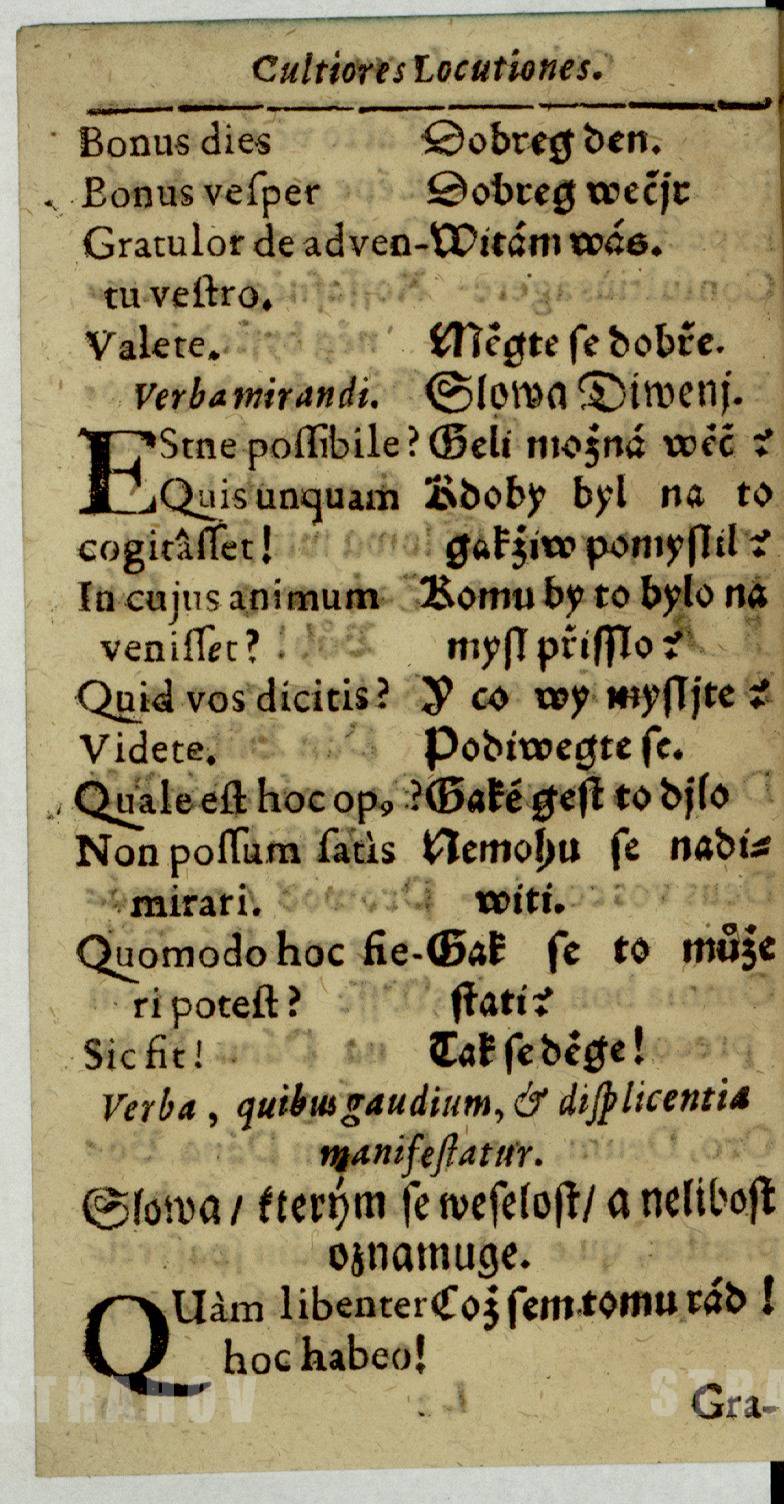 Cultiores Locutiones.
Bonus dies Dobreg den.
Bonus veſper Dobreg wečjr
Gratulor de adven- Witám wás.
tu veſtro.
Valete. Měgte ſe dobře.
Verba mirandi. Slowa Diwenj.
EStne poſſibile? Geli možná wěc ?
Quis unquam Kdoby byl na to
cogitâſſet! gakžiw pomyſlil ?
In cujus animum Komu by to bylo na
veniſſet? myſl přiſſlo ?
Quid vos dicitis? Y co wy myſljte ?
Videte. Podiwegte ſe.
Quale eſt hoc opꝰ ? Gaké geſt to djlo
Non poſſum ſatìs Nemohu ſe nadi⸗
mirari. witi.
Quomodo hoc fie- Gak ſe to může
ri poteſt? ſtati?
Sic fit! Tak ſe děge!
Verba, quibus gaudium, & diſplicentia
manifeſtatur.
Slowa / kterým ſe weſeloſt / a neliboſt
oznamuge.
QUàm libenter Což ſem tomu rád !
hoc habeo!
Gra-
STRAHOV
STRA